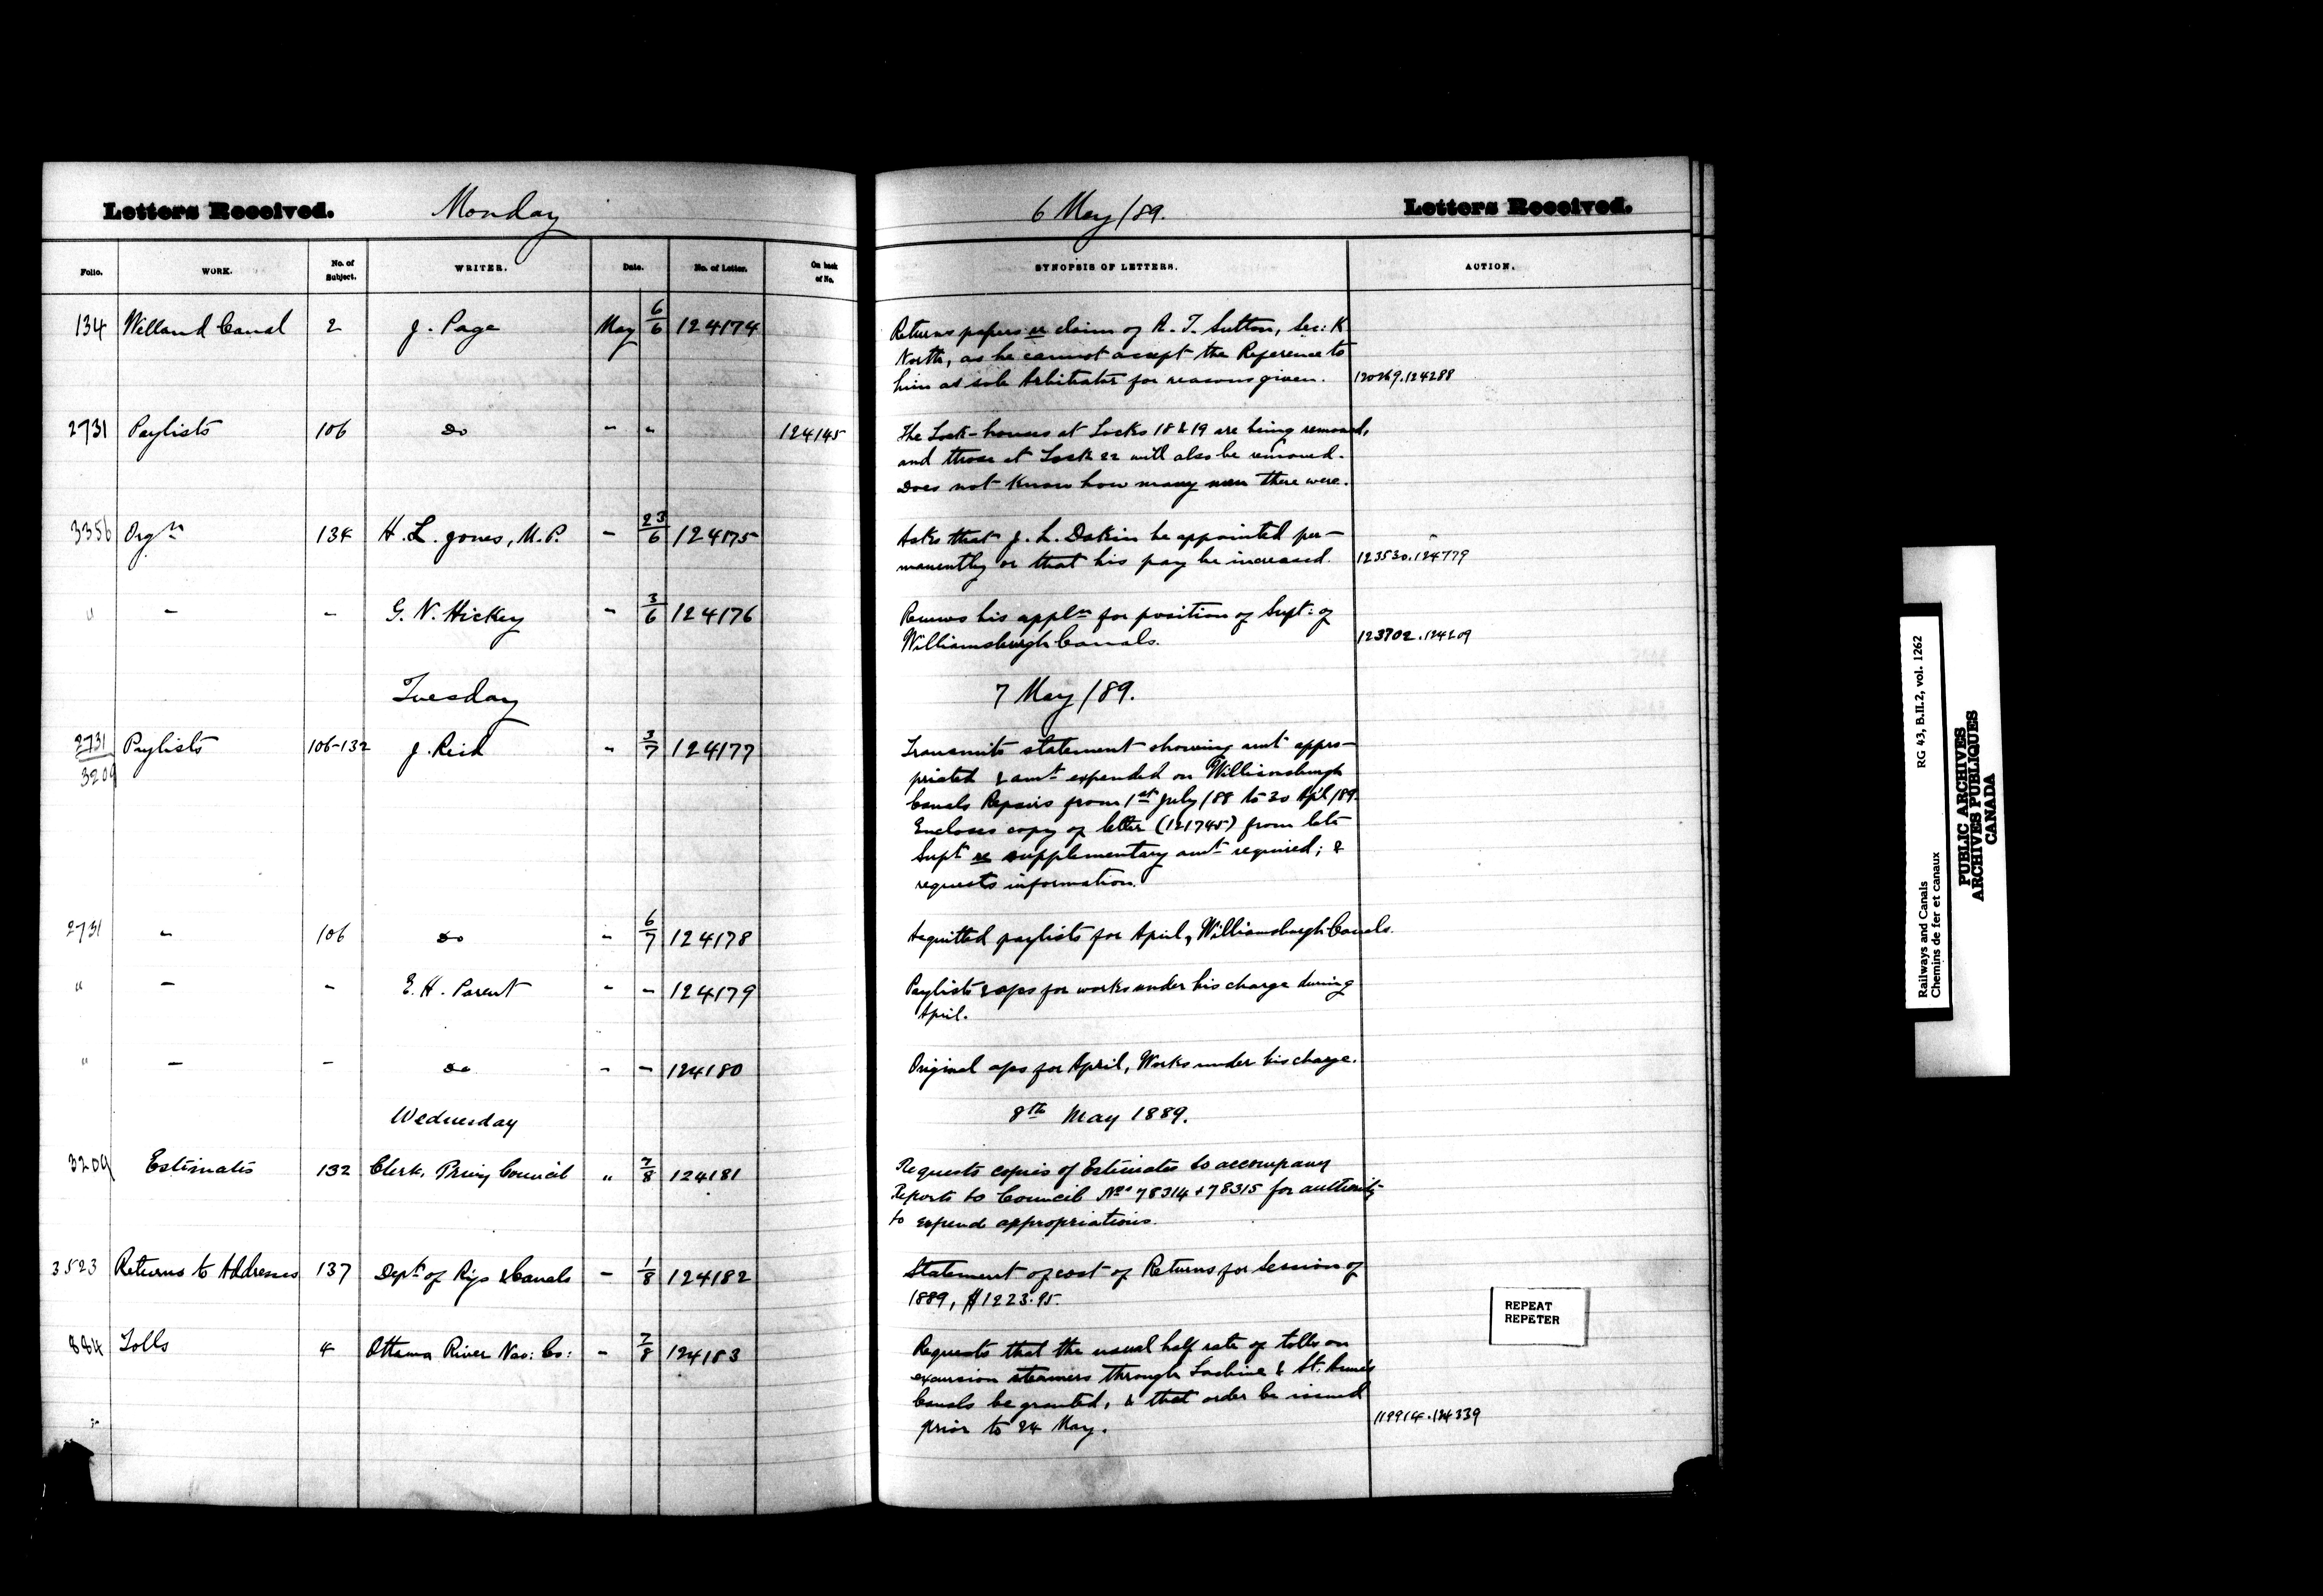 Letters Received. Monday 6 May /89. Letters Received.
Folio. WORK. No. of Subject. WRITER. Date. No. of Letter. On back of No. SYNOPSIS OF LETTERS. ACTION.
134 Welland Canal 2 J. Page May 6/6 124174 Returns papers re claim of A. T. Sutton, Sec: K
North, as he cannot accept the Reference to
him as sole Arbitrator for reasons given. 124288
2731 Paylists 106 Do " " 124145 The Lock-houses at Locks 18 & 19 are being removed,
and those at Lock 22 will also be removed.
Does not know how many men there were.
3356 Orgn 134 H. L. Jones, M.P. - 23/6 124175 Asks that J. L. Dakin be appointed per-
manently or that his pay be increased. 123530.124779
" - - G. N. Hickey - 3/6 124176 Renews his appln for position of Supt: of
Williamsburgh Canals. 123702.124209
Tuesday 7 May /89.
2731/3209 Paylists 106-132 J. Reid " 3/7 124177 Transmits statement showing amt appro-
priated & amt expended on Williamsburgh
Canals Repairs from 1st July /88 to 30 Apl /89.
Encloses copy of letter (121745) from late
Supt re supplementary amt required; &
requests information.
2731 " 106 Do " 6/7 124178 Acquitted paylists for April, Williamsburgh Canals.
" - - E. H. Parent " - 124179 Paylists & a/cs for works under his charge during
April.
" - - Do - - 124180 Original a/cs for April, Works under his charge.
Wednesday 8th May 1889.
3209 Estimates 132 Clerk, Privy Council " 7/8 124181 Requests copies of Estimates to accompany
Reports to Council Nos 78314 & 78315 for authority
to expend appropriations.
3523 Returns to Addresses 137 Dept of Rys & Canals - 1/8 124182 Statement of cost of Returns for Session of
1889, $1223.95.
884 Tolls 4 Ottawa River Nav: Co: - 7/8 124183 Requests that the usual half rate of tolls on
excursion steamers through Lachine & St. Anne's
Canals be granted, & that order be issued
prior to 24 May. 119914.124339
REPEAT
REPETER
Railways and Canals RG 43, B.II.2, vol. 1262
Chemins de fer et canaux
PUBLIC ARCHIVES
ARCHIVES PUBLIQUES
CANADA